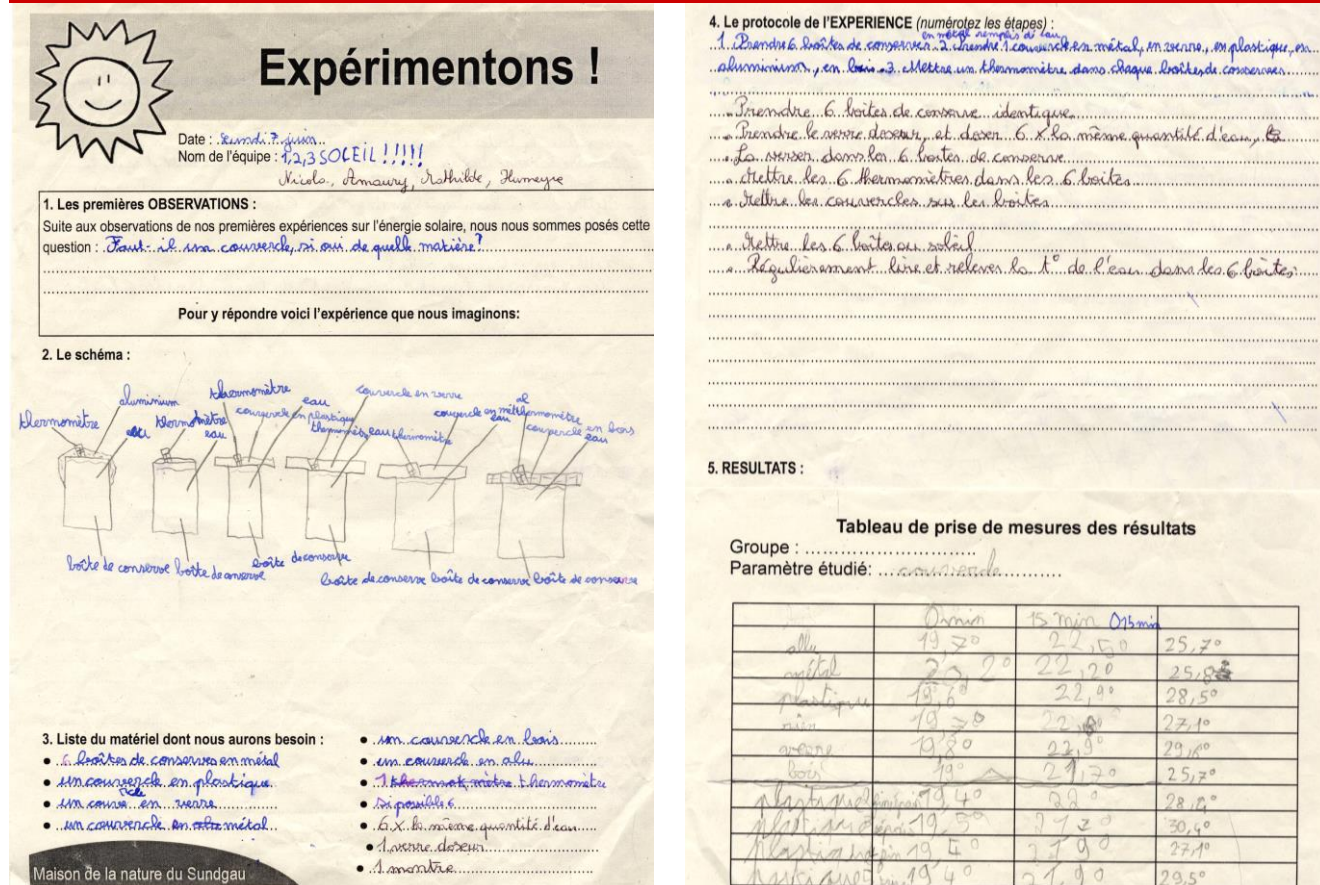 Expérimentons !
Date : Lundi 7 juin
Nom de l'équipe : 1,2,3 SOLEIL !!!!!
Nicolas, Amaury, Mathilde, Humeyre
1. Les premières OBSERVATIONS :
Suite aux observations de nos premières expériences sur l'énergie solaire, nous nous sommes posés cette
question : Faut-il un couvercle, si oui de quelle matière?
Pour y répondre voici l'expérience que nous imaginons:
2. Le schéma :
thermomètre
aluminium
eau
thermomètre
eau
thermomètre
couvercle en plastique
eau
thermomètre
couvercle en verre
eau
thermomètre
couvercle en métal
eau
thermomètre
couvercle en bois
eau
boîte de conserve boîte de conserve boîte de conserve
boîte de conserve boîte de conserve boîte de conserve
3. Liste du matériel dont nous aurons besoin :
• 6 boîtes de conserves en métal
• un couvercle en plastique
• un couvercle en verre
• un couvercle en métal
• un couvercle en bois
• un couvercle en alu
• 1 thermomètre
• si possible 6
• 6 x la même quantité d'eau
• 1 verre doseur
• 1 montre
Maison de la nature du Sundgau
4. Le protocole de l'EXPERIENCE (numérotez les étapes) :
en métal remplis d'eau
1. Prendre 6 boîtes de conserves 2. Prendre 1 couvercle en métal, en verre, en plastique, en
aluminium, en bois. 3 Mettre un thermomètre dans chaque boîtes de conserves
• Prendre 6 boites de conserve identique
• Prendre le verre doseur, et doser 6 x la même quantité d'eau,
• La verser dans les 6 boites de conserve
• Mettre les 6 thermomètres dans les 6 boites
• Mettre les couvercles sur les boites
• Mettre les 6 boîtes au soleil
• Régulièrement lire et relever la t° de l'eau dans les 6 boites
5. RESULTATS :
Tableau de prise de mesures des résultats
Groupe :
Paramètre étudié: couvercle
0 min 15 min 015 min
allu 19,7° 22,5° 25,7°
métal 22,2° 25,8
plastique 19,6° 22,9° 28,5°
rien 27,1°
verre 19,8° 22,9°
bois 19° 21,7° 25,7°
plastique 19,4° 22°
plastique 19,5° 30,4°
plastique 21,9° 27,1°
19,4° 21,90 29,5°